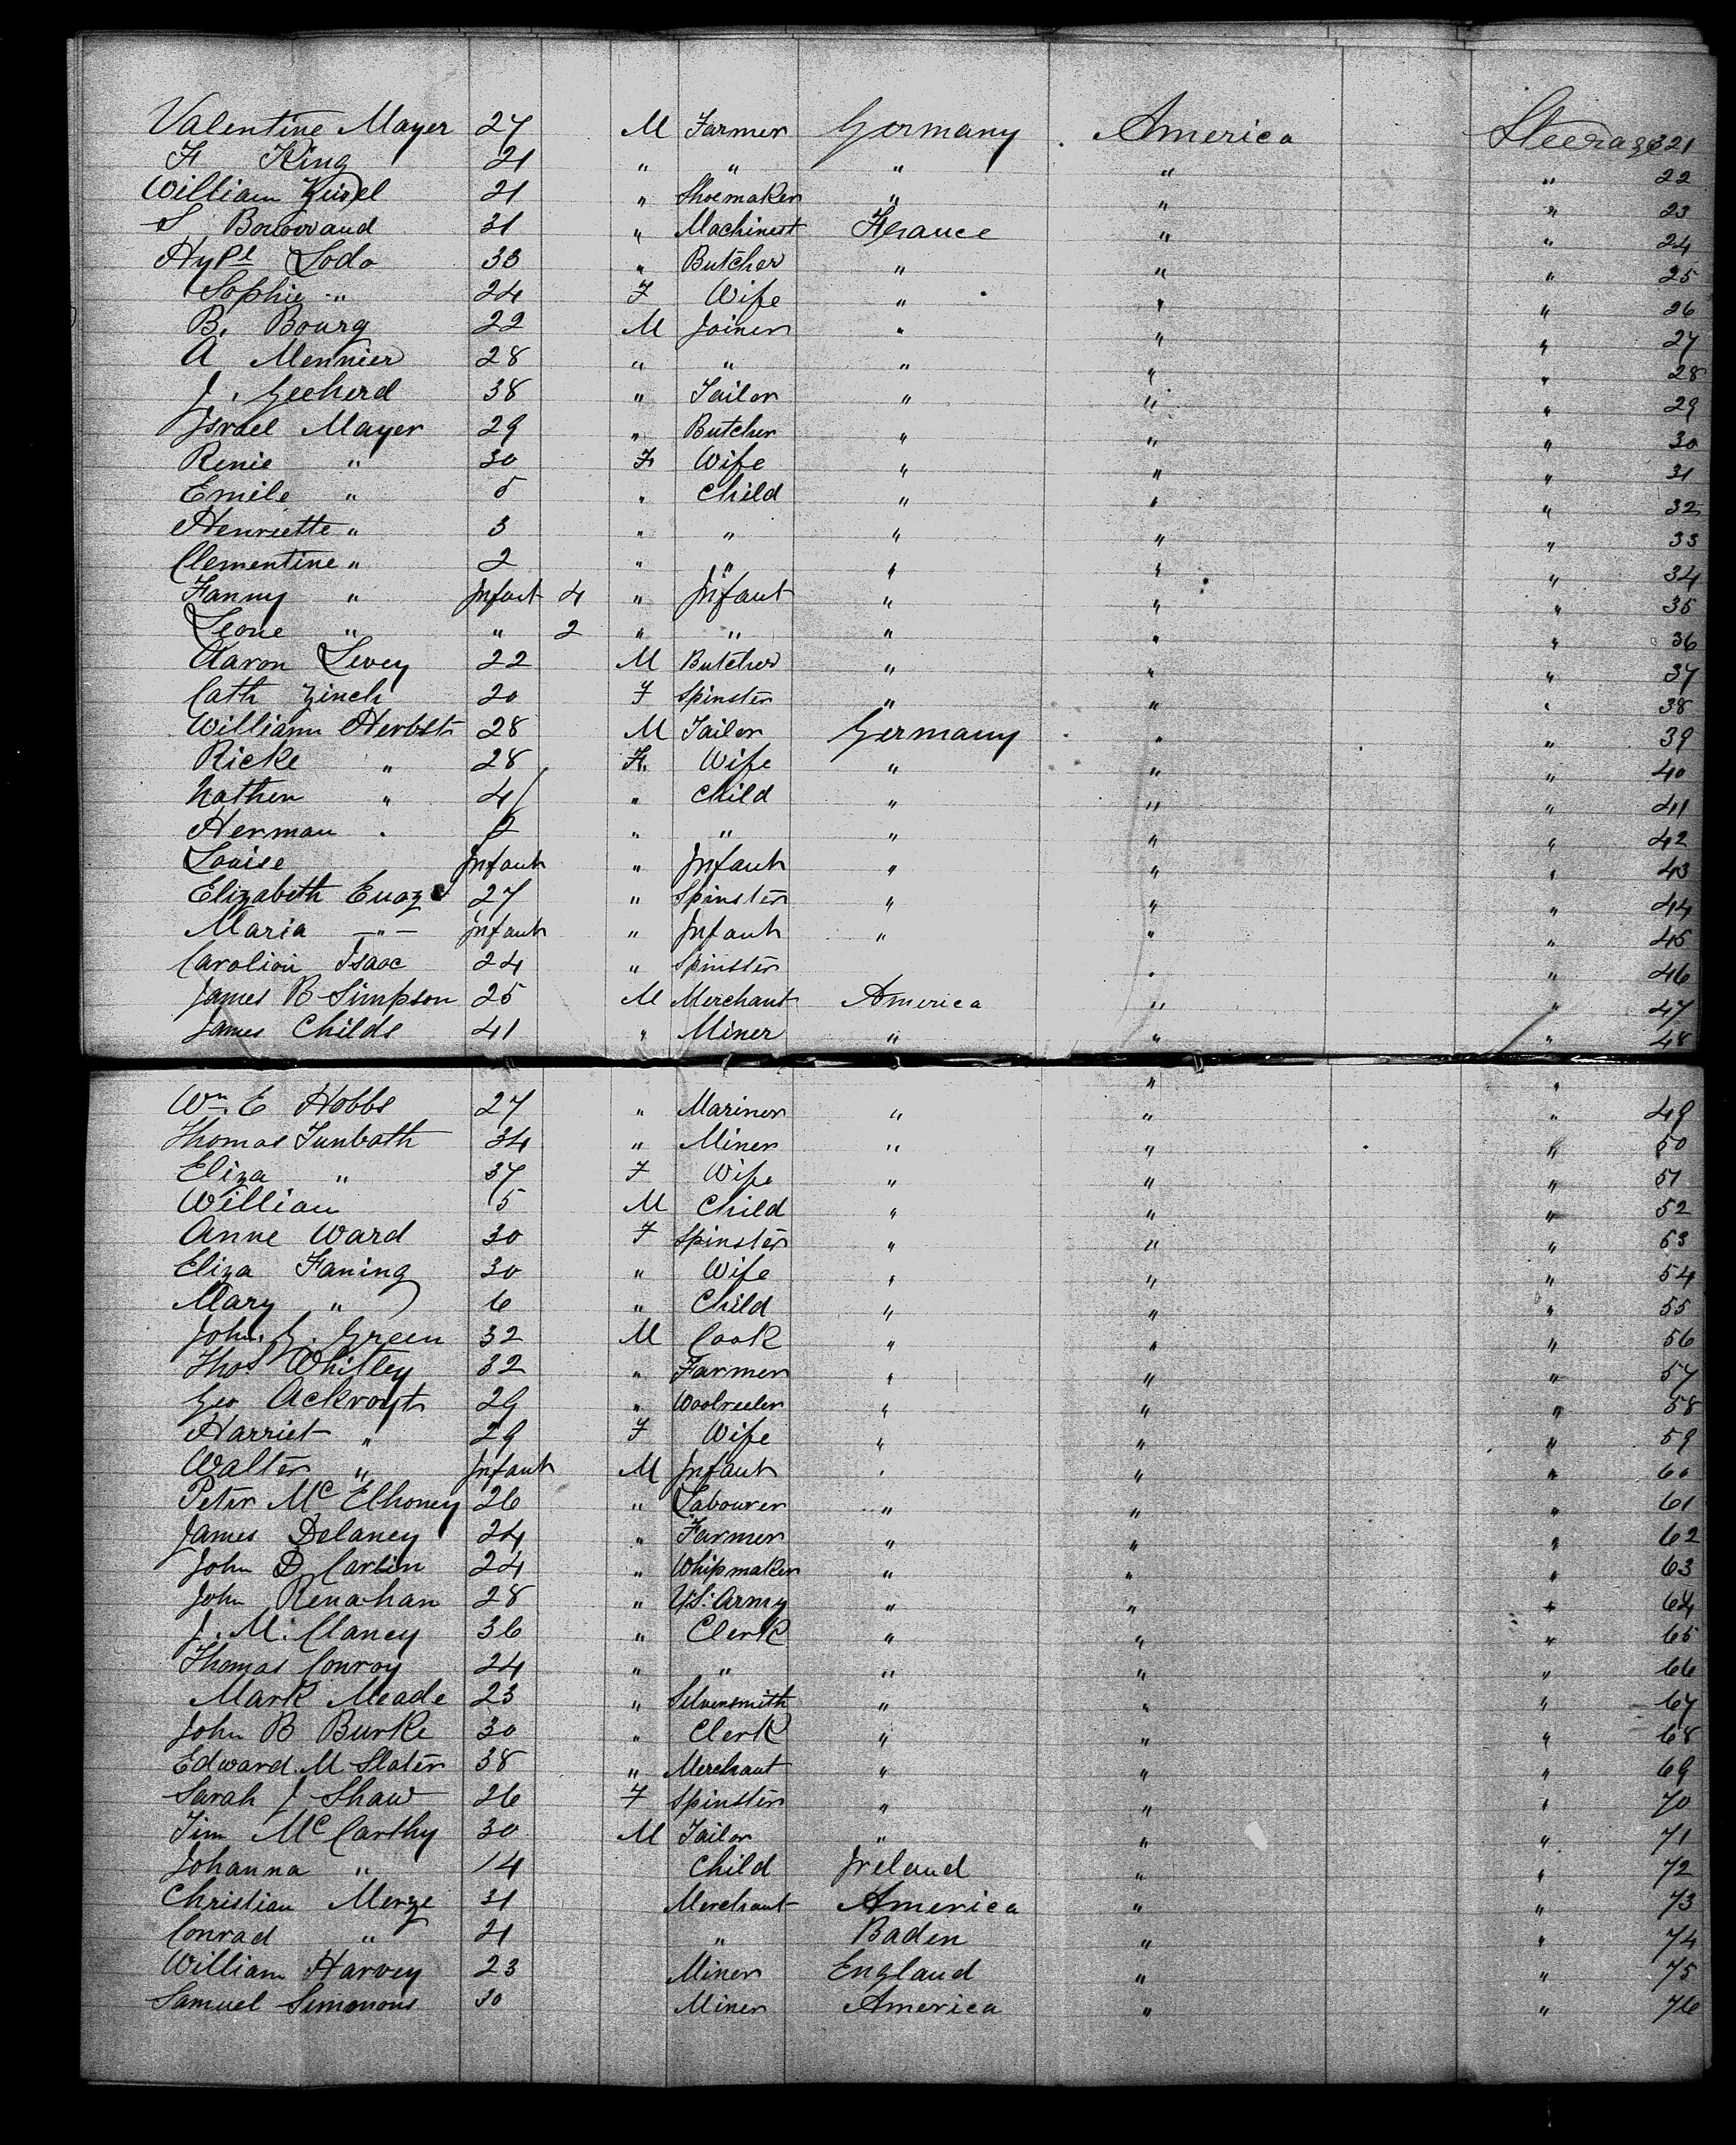 Valentine Mayer 27 M Farmer Germany America Steerage 321
F King 21 " " " " " 22
William 21 " Shoemaker " " " 23
S 31 " Machinest France " " 24
Hypl Lodo 33 " Butcher " " " 25
Sophie " 24 F Wife " " " 26
B. Bourg 22 M Joiner " " " 27
A Mennier 28 " " " " " 28
J. Gecherd 38 " Tailor " " " 29
Israel Mayer 29 " Butcher " " " 30
Renie " 30 F Wife " " " 31
Emile " 5 " Child " " " 32
Henriette " 3 " " " " " 33
Clementine " 2 " " " " " 34
Fanny " Infant 4 " Infant " " " 35
Leone " " 2 " " " " " 36
Aaron Levey 22 M Butcher " " " 37
Cath Zinch 20 F Spinster " " " 38
William Herbst 28 M Tailor Germany " " 39
Ricke " 28 F. Wife " " " 40
Nathen " 4 " Child " " " 41
Herman " 2 " " " " " 42
Louise Infant " Infant " " " 43
Elizabeth 27 " Spinster " " " 44
Maria —"— Infant " Infant " " " 45
Carolion Isaac 24 " Spinster " " 46
James B Simpson 25 M Merchant America " " 47
James Childs 41 " Miner " " " 48
" "
Wm. E Hobbs 27 " Mariner " " " 49
Thomas Tunbath 34 " Miner " " " 50
Eliza " 37 F Wife " " " 51
William 5 M Child " " " 52
Anne Ward 30 F Spinster " " " 53
Eliza Faning 30 " Wife " " " 54
Mary " 6 " Child " " " 55
John. G. Green 32 M Cook " " " 56
Thos Whitley 32 " Farmer " " " 57
Geo Ackroyt 29 " Woolreeler " " " 58
Harriet " 29 F Wife " " " 59
Walter " Infant M Infant " " " 60
Peter Mc Elhoney 26 " Labourer " " " 61
James Delaney 24 " Farmer " " " 62
John D Carlin 24 " Whipmaker " " " 63
John Renahan 28 " U.S. Army " " " 64
J. M. Clancy 36 " Clerk " " " 65
Thomas Conroy 24 " " " " " 66
Mark Meade 23 " Silversmith " " " 67
John B Burke 30 " Clerk " " " 68
Edward. M Slater 38 " Merchant " " " 69
Sarah J Shaw 26 F Spinster " " " 70
Tim Mc Carthy 30 M Tailor " " " 71
Johanna " 14 Child Ireland " " 72
Christian Merze 31 Merchant America " " 73
Conrad " 21 " Baden " " 74
William Harvey 23 Miner England " " 75
Samuel Simonons 30 Miner America " " 76